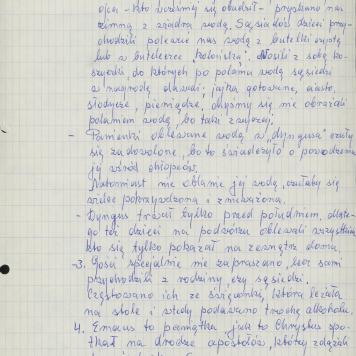 ojca - kto wcześniej się obudził - pryskano nas
zimną z wiadra wodą. Sąsiadów dzieci przy-
chodzili polewać nas wodą z butelki czystą
lub w buteleczce "kolońska". Nosili z sobą ko-
szyczki, do których po polaniu wodą sąsiedzi
w nagrodę dawali: jajka gotowane, ciasto,
słodycze, pieniądze, abyśmy się nie obrażali
polaniem wodą, bo taki zwyczaj.
- Panienki oblewane wodą w "dyngusa" czuły
się zadowolone, bo to świadczyło o powodzeniu
jej wśród chłopców.
Natomiast nie oblanie jej wodą, czułaby się
wielce pokrzywdzona i znieważona.
- Dyngus trwał tylko przed południem, dlate-
go też dzieci na podwórku oblewali wszystkich
kto się tylko pokazał na zewnątrz domu.
-3. Gości specjalnie nie zapraszano, lecz sami
przychodzili z rodziny, czy sąsiedzi.
Częstowano ich ze święconki, która leżała
na stole i wtedy podawano trochę alkoholu.
4. Emaus to pamiątka, jak to Chrystus spo-
tkał na drodze apostołów, którzy zdążali